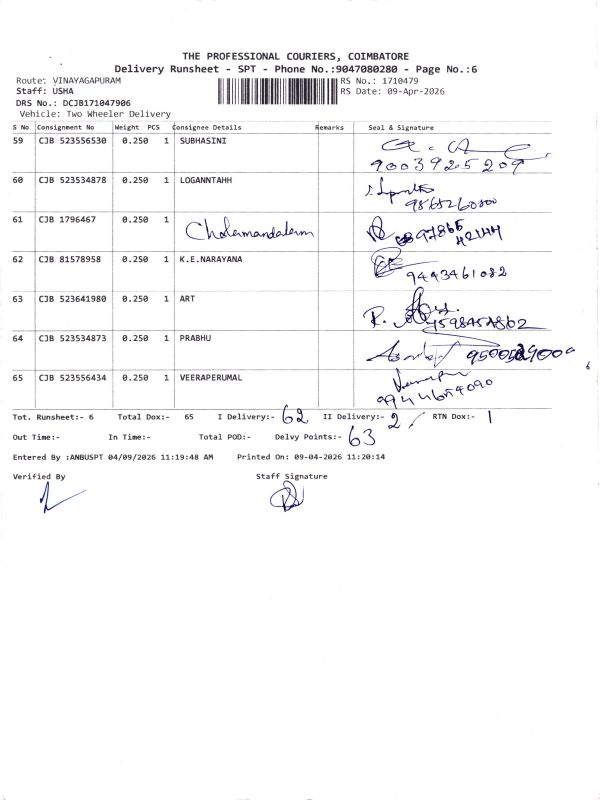 THE PROFESSIONAL COURIERS, COIMBATORE
Delivery Runsheet - SPT - Phone No.:9047080280 - Page No.:6
Route: VINAYAGAPURAM RS No.: 1710479
Staff: USHA RS Date: 09-Apr-2026
DRS No.: DCJB171047906
Vehicle: Two Wheeler Delivery
S No Consignment No Weight PCS Consignee Details Remarks Seal & Signature
59 CJB 523556530 0.250 1 SUBHASINI
9003925209
60 CJB 523534878 0.250 1 LOGANNTAHH
61 CJB 1796467 0.250 1 Cholamandalam
62 CJB 81578958 0.250 1 K.E.NARAYANA
9443461082
63 CJB 523641980 0.250 1 ART
64 CJB 523534873 0.250 1 PRABHU
65 CJB 523556434 0.250 1 VEERAPERUMAL
Tot. Runsheet:- 6 Total Dox:- 65 I Delivery:- 62 II Delivery:- 2 RTN Dox:- 1
Out Time:- In Time:- Total POD:- Delvy Points:- 63
Entered By :ANBUSPT 04/09/2026 11:19:48 AM Printed On: 09-04-2026 11:20:14
Verified By Staff Signature
6